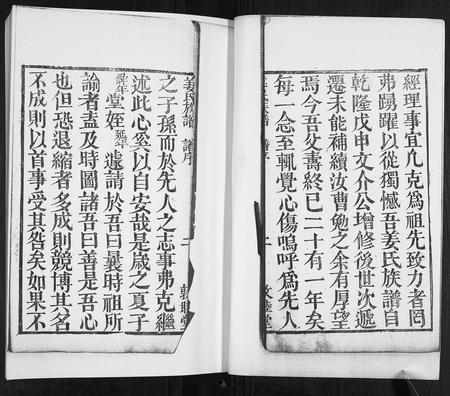 經理事宜凡克為祖先致力者罔
弗踴躍以從獨憾吾姜氏族譜自
乾隆戊申文介公增修後世次遞
遷未能補續汝曹勉之余有厚望
焉今吾父壽終已二十有一年矣
每一念至輒覺心傷嗚呼為先人
敦睦堂
姜氏族譜 譜序
二
敦睦堂
之子孫而於先人之志事弗克繼
述此心奚以自安哉是歲之夏子
堂姪 延年 遽請於吾曰曩時祖所
諭者盍及時圖諸吾曰善是吾心
也但恐退縮者多成則競博其名
不成則以首事受其咎矣如果不